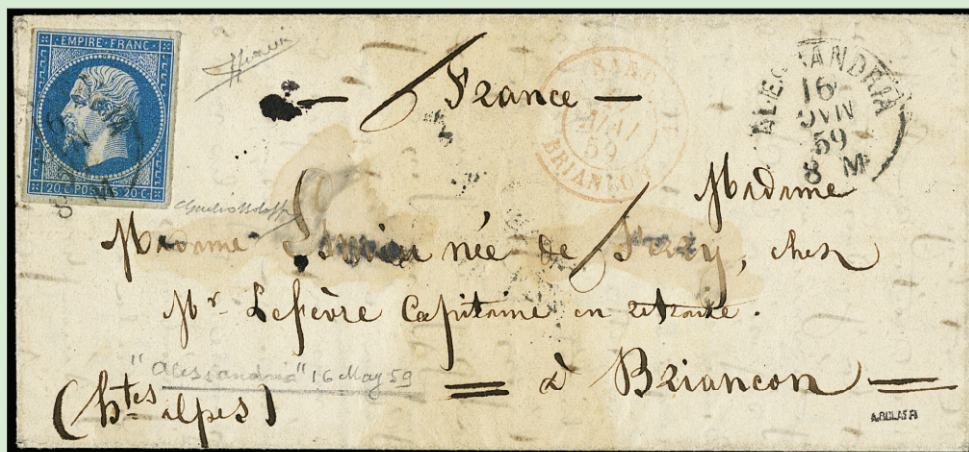 EMPIRE FRANC
20 C. POSTES 20 C.
France
SARD
MAI
59
BRIANCON
ALESSANDRIA
16
59
8 M
Madame
Madame née de, chez
Mr. Lefèvre Capitaine en retraite.
"Alessandria" 16 May 59
à Briancon
(htes alpes)